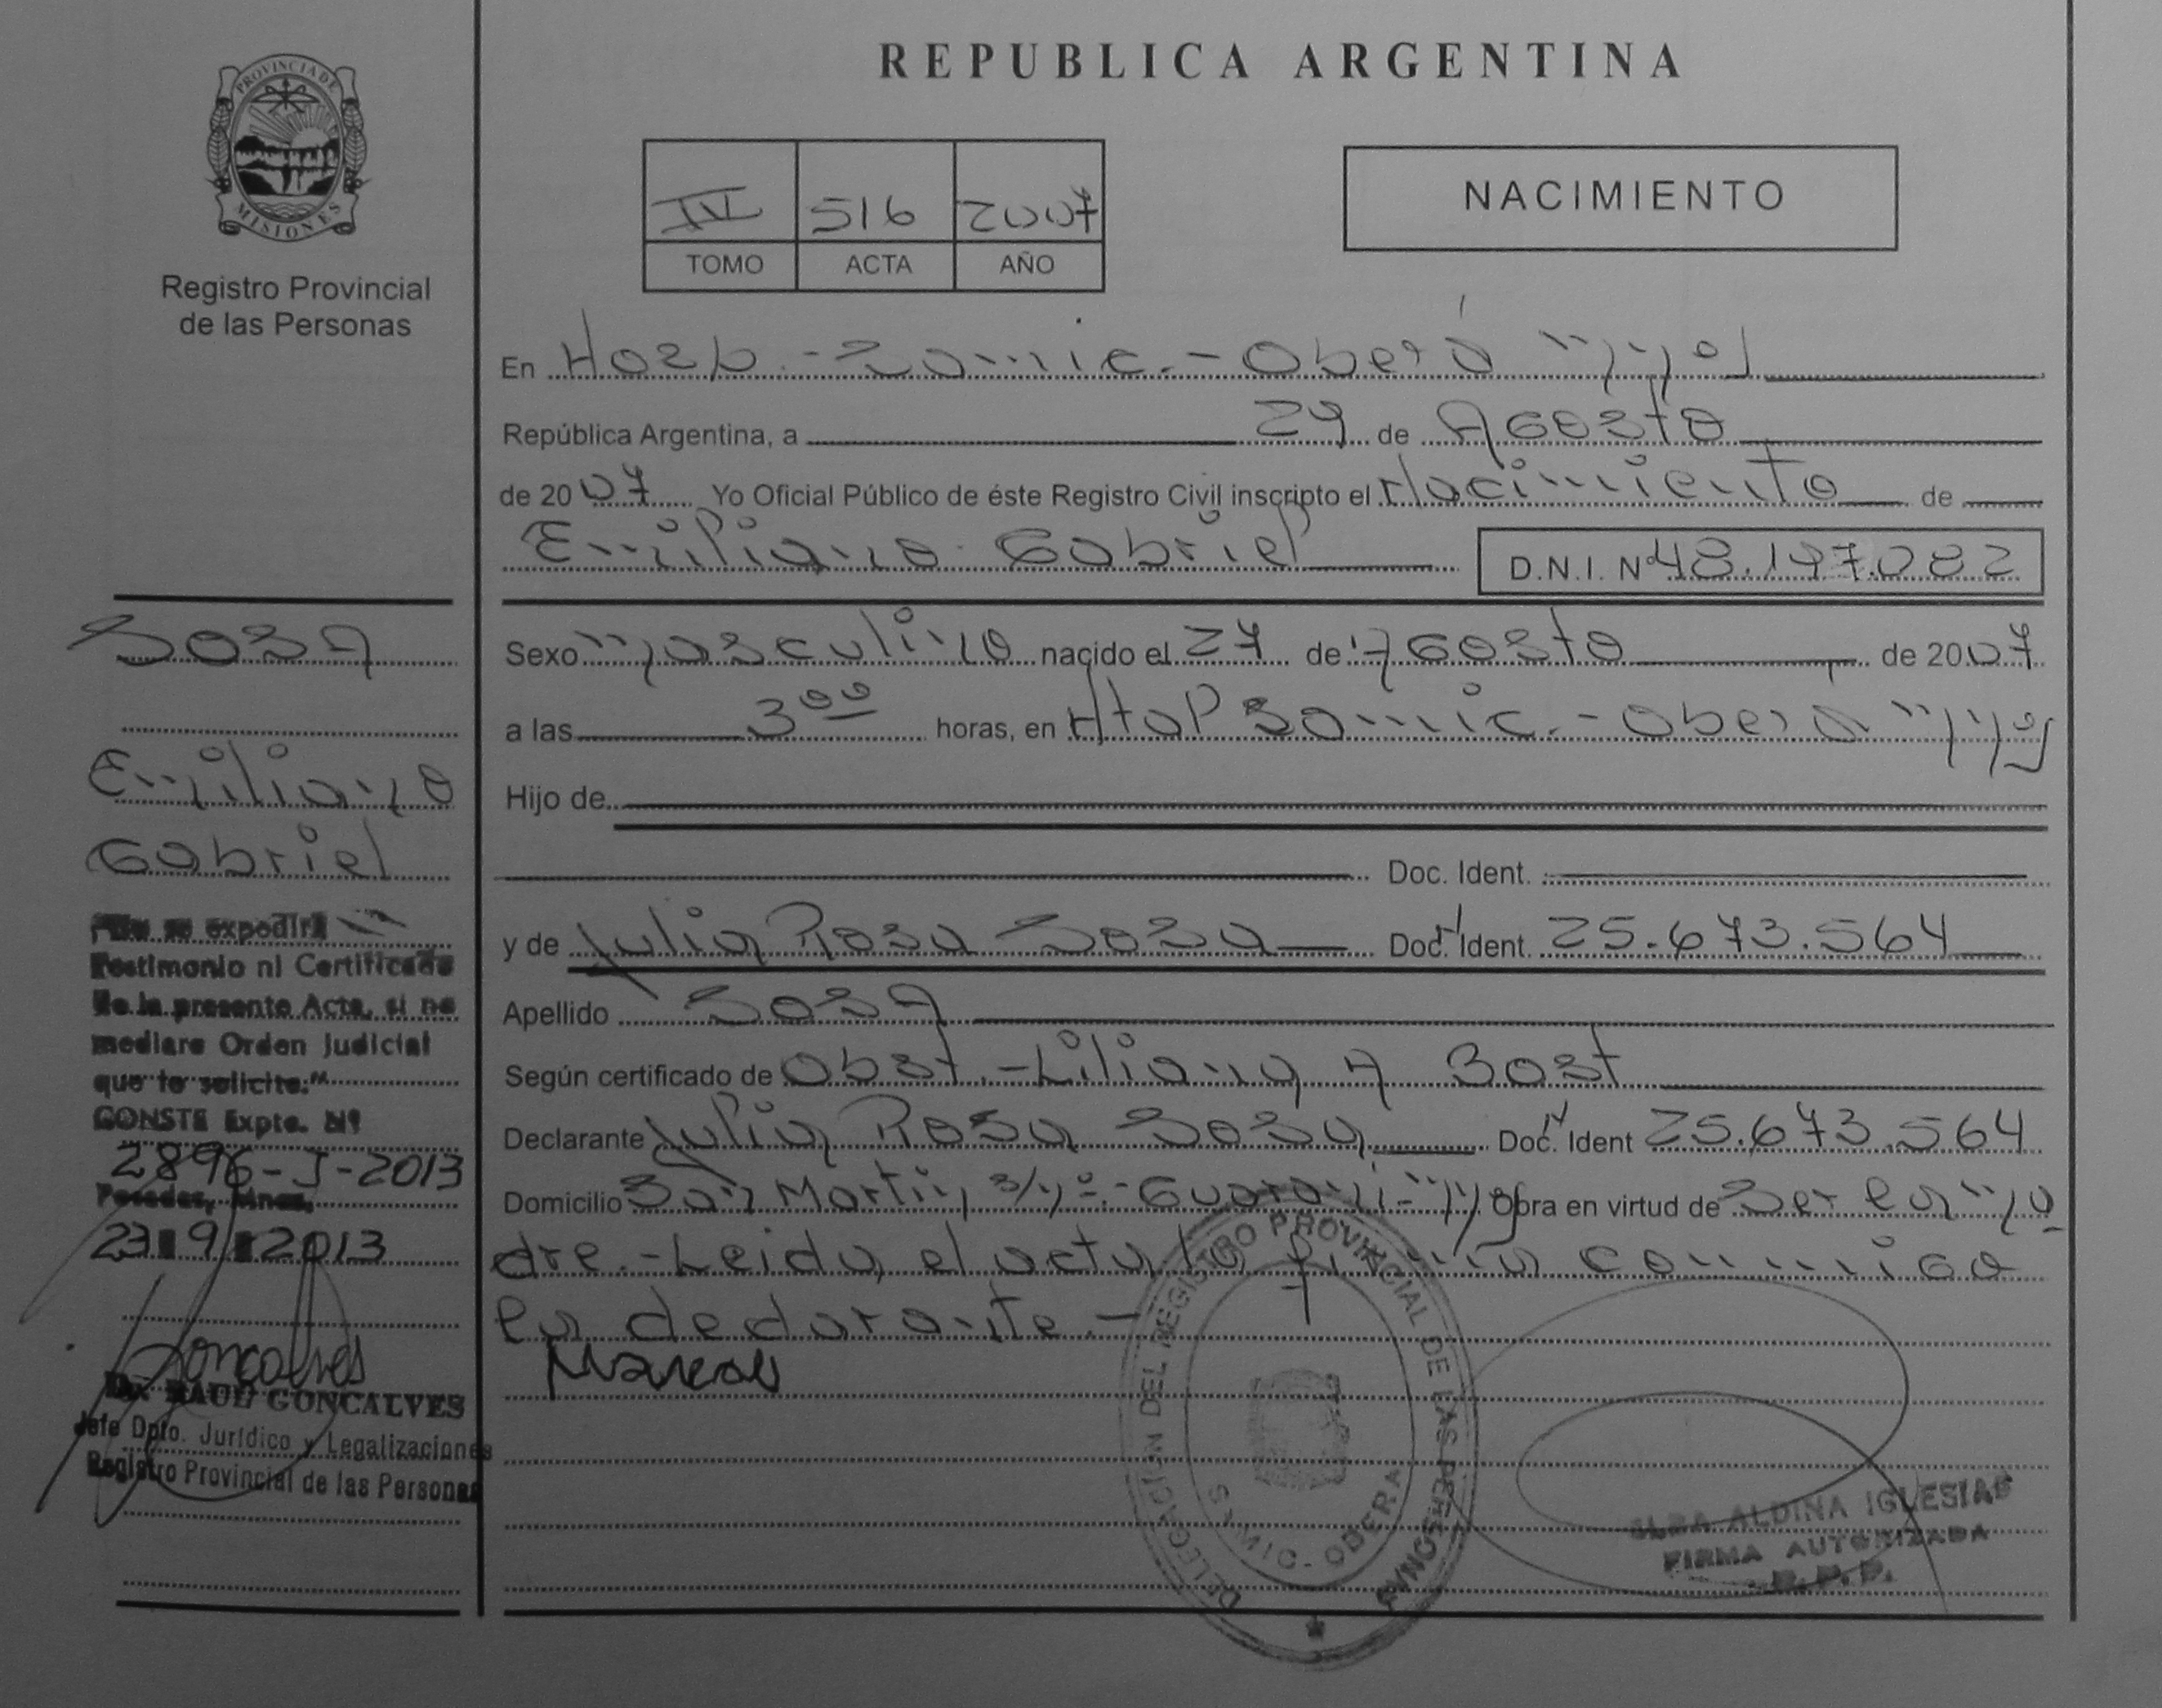 REPUBLICA ARGENTINA
PROVINCIA DE
MISIONES
Registro Provincial
de las Personas
IV 516 2007
TOMO ACTA AÑO
NACIMIENTO
En Hosp.-Samic.-Oberá Mnes
República Argentina, a 29 de Agosto
de 2007 Yo Oficial Público de éste Registro Civil inscripto el Nacimiento de
Emiliano Gabriel D.N.I. Nº 48.147.082
Sexo Masculino nacido el 27 de Agosto de 2007
a las 3⁰⁰ horas, en Htal Samic.-Oberá Mnes
Hijo de
Doc. Ident.
y de Julia Rosa Sosa Doc. Ident. 25.673.564
Apellido SosA
Según certificado de Obst.-Liliana A Bost
Declarante Julia Rosa Sosa Doc. Ident 25.673.564
Domicilio San Martin S/Nº.-Guarani- Obra en virtud de Ser la Ma
dre.-Leida el acta la firma conmigo
la declarante.-
SosA
Emiliano
Gabriel
"No se expedirá
Testimonio ni Certificado
de la presente Acta, si no
mediare Orden Judicial
que lo solicite."
CONSTE Expte. Nº
2896-J-2013
Posadas, Mnes,
23 9 2013
Goncalves
Dr. RAUL GONCALVES
Jefe Dpto. Jurídico y Legalizaciones
Registro Provincial de las Personas
DELEGACION DEL REGISTRO PROVINCIAL DE LAS PERSONAS
SAMIC - OBERA
ELBA ALDINA IGLESIAS
FIRMA AUTORIZADA
R.P.P.